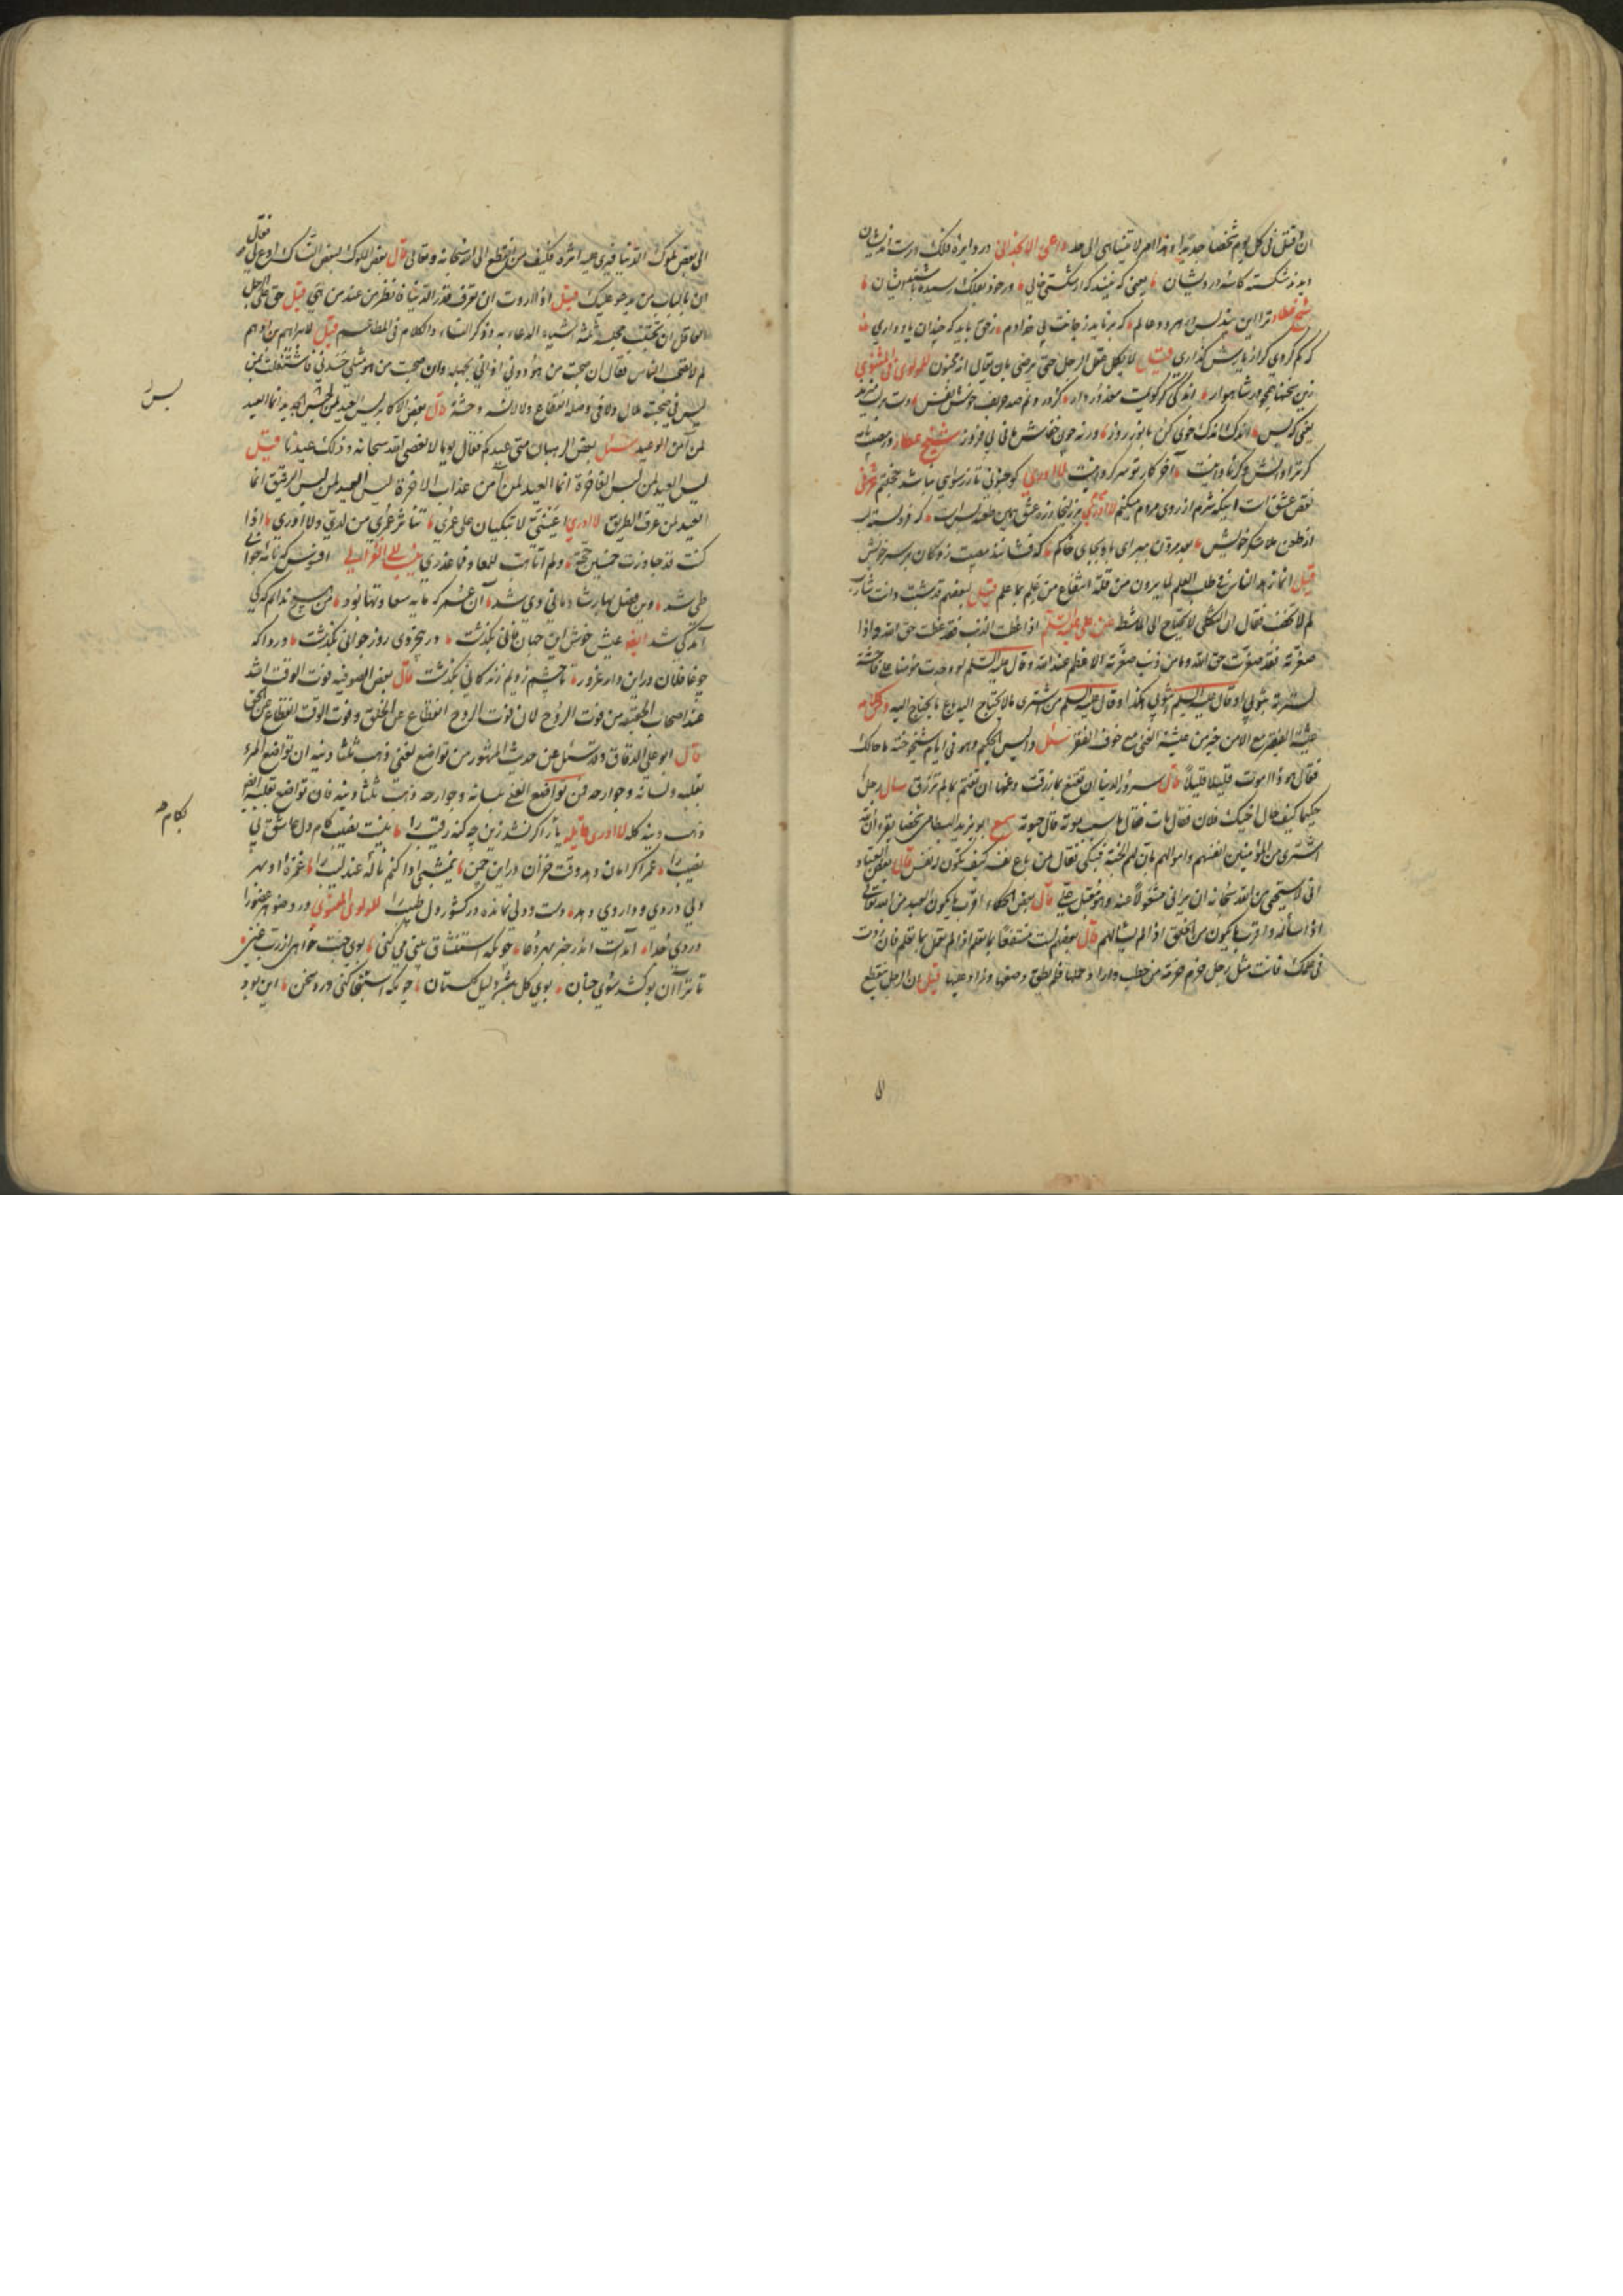 ان اقتل فی کل یوم شخصا جدیدا و هذا امر لا یتناهی الی حد داعی الانجدانی در دایرهٔ فلک درست اندیشان
دیدند شکسته کاسهٔ درویشان یعنی که نبیند که از شکستی خالی ور خود بفلک رسیده باشد ایشان
شیخ عطار ترا این پند بس در هر دو عالم که بر ناید ز جانت بی خدا دم ز حق باید که چندان یاد داری
که گم گردی گر از یادش گذاری قیل لا یکمل عقل الرجل حتی یرضی بان یقال انه مجنون للمولوی فی المثنوی
زین سخنهای همچو در شاهوار اندکی گر گویمت معذور دار
یعنی که بس اندک اندک خوی کن با نور روز ورنه چون خفاش مانی بی فروز شیخ عطار
آخر کار تو سر گردانیست لا ادری
نقص عشق است اینکه شرم از روی مردم میکنم لا ادری بر زلیخا زده عشق همین طعنه بس است
از طعن ملامتگر خویش بعد مردن مبرای باد بجای خاکم که فشانند مصیبت زدگان بر سر خویش
قیل انما زهد الناس فی طلب العلم لما یرون من قلة انتفاع من علم بما علم قیل لبعضهم قد شبت وانت شاب
لم لا تخضب فقال ان الثکلی لا تحتاج الی الماشطة عن علی علیه السلم اذا عظمت الذنب فقد عظمت حق الله واذا
صغرته فقد صغرت حق الله وما من ذنب صغرته الا عظم عند الله وقال علیه السلم لو وجدت مؤمنا علی فاحشة
لسترته بثوبی او قال علیه السلم بثوبه هکذا وقال علیه السلم من اشتری ما لا یحتاج الیه باع ما یحتاج الیه
عیشة الفقیر مع الامن خیر من عیشة الغنی مع خوف الفقر سئل الحکیم وهو فی ایام شیخوخته ما حالک
فقال هو ذا اموت قلیلا قلیلا قال سرور الدنیا ان تقنع بما رزقت وغمها ان تغتم بما لم ترزق سال رجل
حکیما کیف حال اخیک فلان فقال مات فقال ما سبب موته قال حیوته سمع ابو یزید البسطامی شخصا یقرء ان الله
اشتری من المؤمنین انفسهم واموالهم بان لهم الجنة فبکی فقال من باع نفسه کیف یکون له نفس قال بعض العباد
انی لاستحیی من الله سبحانه ان یرانی مشغولا عنه وهو مقبل علی قال بعض الحکماء اقرب ما یکون العبد من الله تعالی
اذا سأله واقرب ما یکون من الخلق اذا لم یسألهم قال بعضهم لست منتفعا بما تعلم اذا لم تعمل بما تعلم فان زدت
فی علمک فانت مثل رجل حزم حزمة من حطب واراد حملها فلم یطق وضعها وزاد علیها قیل ان الرجل ینقطع
لا
الی بعض ملوک الدنیا فیری علیه اثره فکیف من انقطع الی الله سبحانه وتعالی قال بعض الملوک لبعض النساک ادع لی فقال
ان بالباب من یدعو علیک قیل اذا اردت ان تعرف قدر الدنیا فانظر من عند من هی قیل حق علی الرجل
العاقل ان یجنب مجلسه ثلثة اشیاء الدعابه وذکر النساء والکلام فی المطاعم قیل لابراهیم بن ادهم
لم لا تصحب الناس فقال ان صحبت من هو دونی اذانی بجهله وان صحبت من هو مثلی حسدنی فاشتغلت بمن
لیس فی صحبته ملال ولا فی وصله انقطاع ولا لانسه وحشة قال بعض الاکابر لیس العید لمن لبس الجدید انما العید
لمن امن الوعید سئل بعض الرهبان متی عیدکم فقال یوما لا نعصی الله سبحانه وذلک عیدنا قیل
لیس العید لمن لبس الفاخرة انما العید لمن امن عذاب الاخرة لیس العید لمن لبس الرقیق انما
العید لمن عرف الطریق لا ادری اعینی لا تبکیان علی عمری تناثر عمری من یدی ولا ادری اذا
کنت قد جاوزت خمسین حجة ولم اتاهب للمعاد فما عذری غزالی افسوس که نامهٔ جوانی
طی شد وین فصل بهار شادمانی دی شد آن عمر که مایه سعادتها بود من هیچ ندانم که کی
آمد کی شد ایضا عیش خوش این جهان فانی بگذشت در بیخردی روز جوانی بگذشت دردا که
چو غافلان در این دار غرور تا چشم زدیم زندگانی بگذشت قال بعض الصوفیه فوت الوقت اشد
عند اصحاب الحقیقة من فوت الروح لان فوت الروح انقطاع عن الخلق وفوت الوقت انقطاع عن الحق
قال ابو علی الدقاق وقد سئل عن حدیث المشهور من تواضع لغنی ذهب ثلثا دینه ان تواضع المرء
بقلبه ولسانه وجوارحه فمن تواضع لغنی بلسانه وجوارحه ذهب ثلثا دینه فان تواضع بقلبه ایضا
ذهب دینه کله لا ادری قایله یار اگر نشد زین چه گنه رقیب را نیست نصیب کام دل عاشق بی
نصیب را عمر اگر امان دهد وقت خزان در این چمن نیمشبی ادا کنم نالهٔ عندلیب را غمزهٔ او بهر
دلی دردی و داروی دهد دست و دلی نمانده در کشور دل طبیب را للمولوی المعنوی در وضو هر عضو را
وردی جدا آمدست اندر خبر بهر دعا چونکه استنشاق بینی می کنی بوی جنت خواه از رب غنی
تا ترا آن بو کشد سوی جنان بوی گل باشد دلیل گلستان چونکه استنجا کنی ورد سخن این بود
لبس
بکام